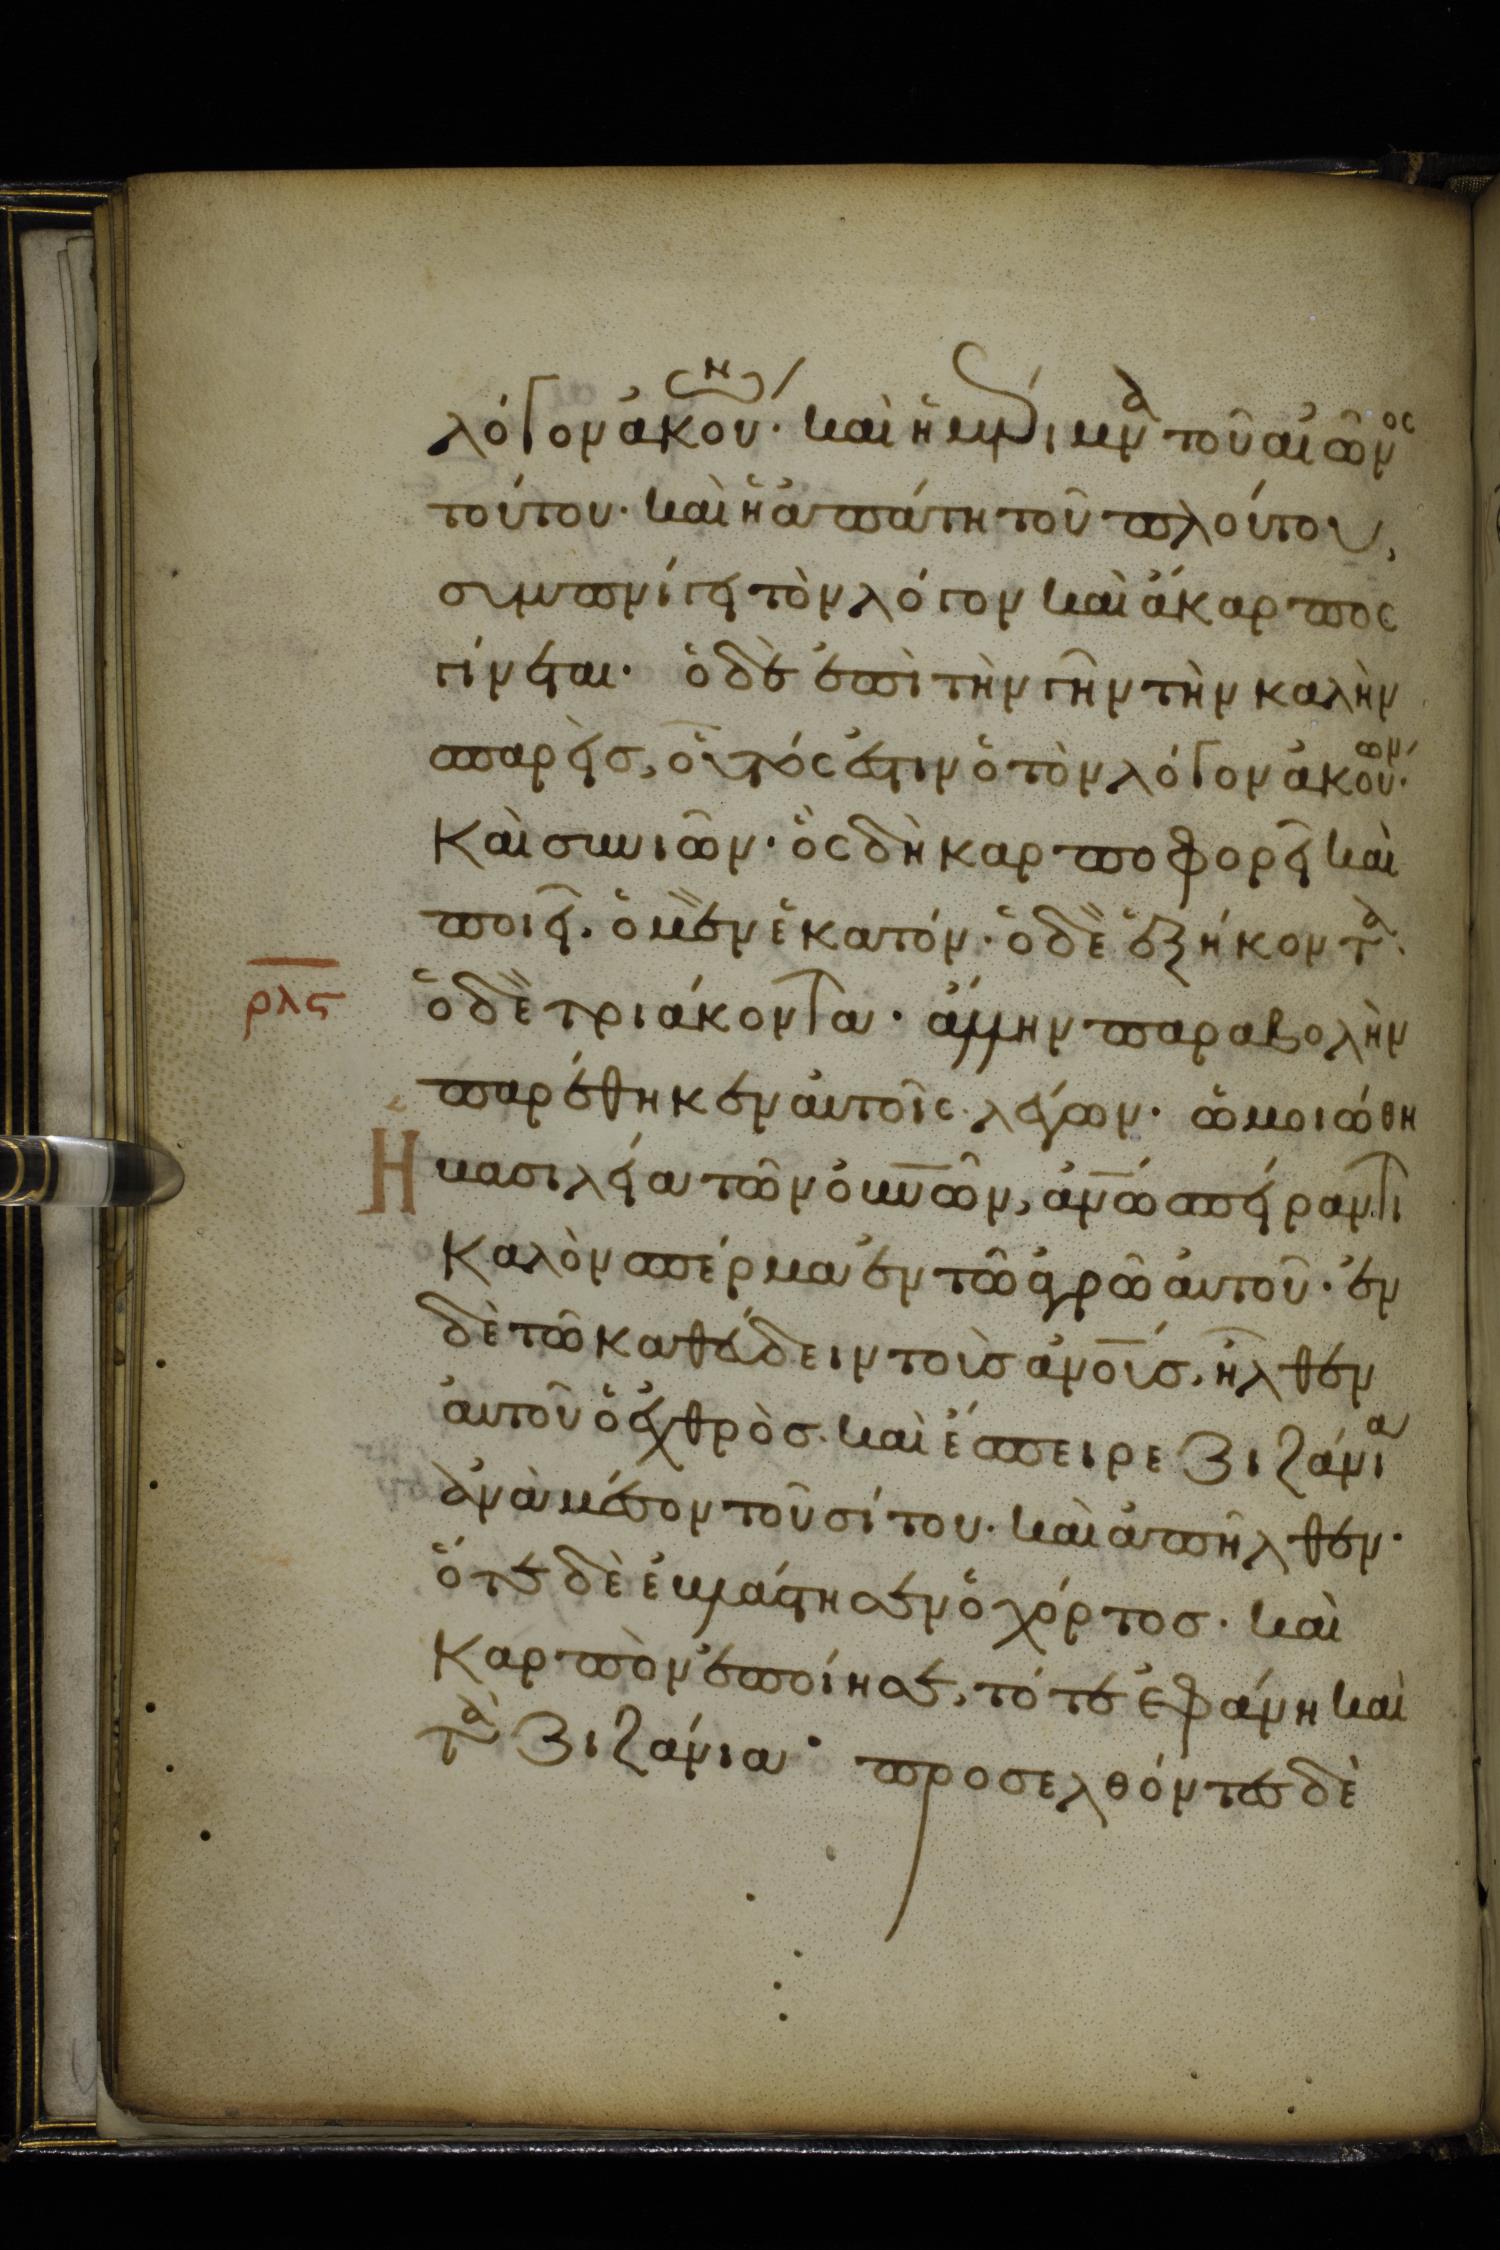 λόγον ἀκούων· καὶ ἡ μέριμνα τοῦ αἰῶνος
τούτου· καὶ ἡ ἀπάτη τοῦ πλούτου,
συμπνίγει τὸν λόγον καὶ ἄκαρπος
γίνεται· ὁ δὲ ἐπὶ τὴν γῆν τὴν καλὴν
σπαρεὶς, οὗτός ἐστιν ὁ τὸν λόγον ἀκούων·
καὶ συνιῶν· ὃς δὴ καρποφορεῖ καὶ
ποιεῖ. ὁ μὲν ἑκατόν· ὁ δὲ ἑξήκοντα·
ρλς
ὁ δὲ τριάκοντα· ἄλλην παραβολὴν
παρέθηκεν αὐτοῖς λέγων· ὡμοιώθη
Ἡ βασιλεία τῶν οὐνῶν, ἀνῶ σπείραντι
καλὸν σπέρμα ἐν τῶ ἀγρῶ αὐτοῦ· ἐν
δὲ τῶ καθεύδειν τοὺς ἀνους, ἦλθεν
αὐτοῦ ὁ ἐχθρὸς· καὶ ἔσπειρε ζιζάνια
ἀνὰ μέσον τοῦ σίτου· καὶ ἀπῆλθεν·
ὅτε δὲ ἐβλάστησεν ὁ χόρτος· καὶ
καρπὸν ἐποίησε, τότε ἐφάνη καὶ
τὰ ζιζάνια· προσελθόντες δὲ